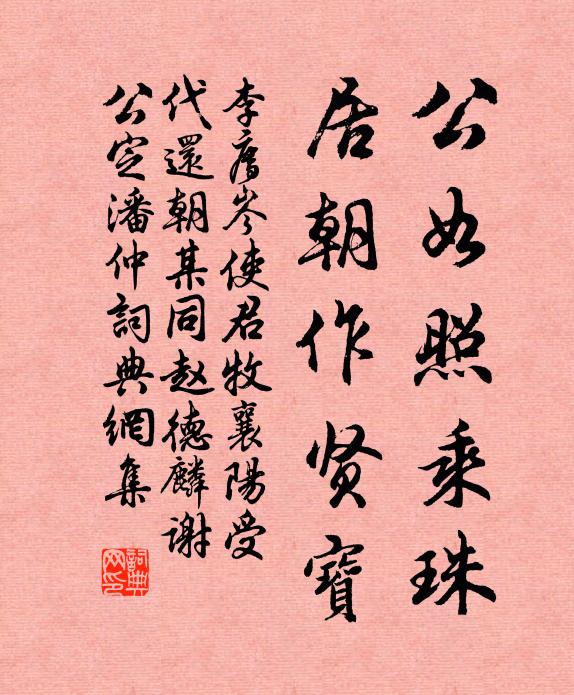 公如照乘珠
居朝作贤寶
李唐岑使君牧襄陽受
代還朝某同赵德麟谢
公定潘仲詞典網集
詞典网印